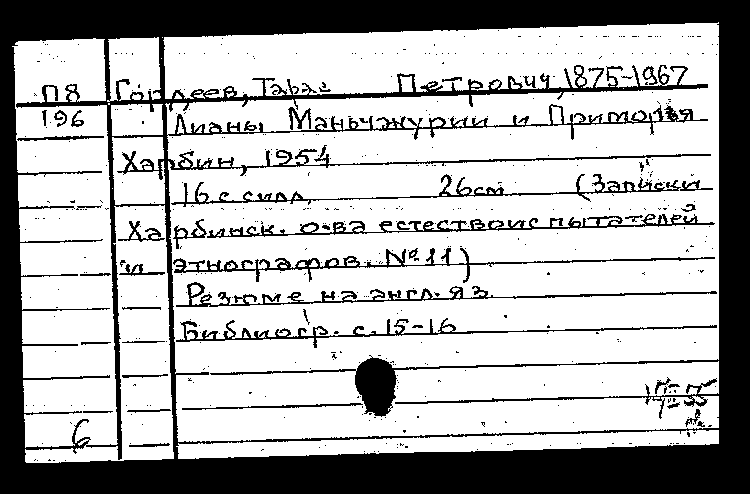 П8 Гордеев, Тарас Петрович, 1875-1967
196 Лианы Маньчжурии и Приморья
Харбин, 1954
16 с илл. 26см (Записки
Харбинск. о-ва естествоиспытателей
и этнографов. №11)
Резюме на англ. яз.
Библиогр. с. 15-16
6